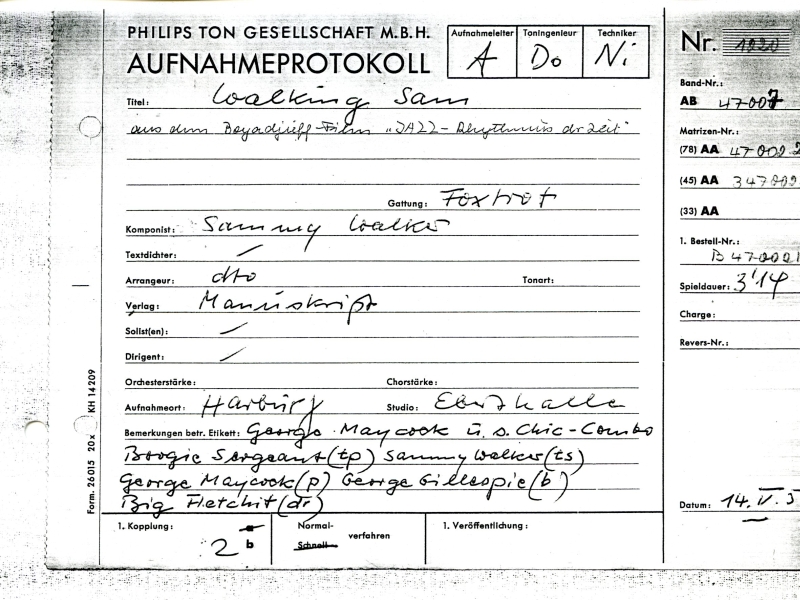 PHILIPS TON GESELLSCHAFT M.B.H.
AUFNAHMEPROTOKOLL
Aufnahmeleiter Toningenieur Techniker
A Do Ni
Nr. 1020
Band-Nr.:
AB 47007
Titel: Walking Sam
aus dem Boyadjieff-Film "JAZZ-Rhythmus dr Zeit"
Matrizen-Nr.:
(78) AA 47002
(45) AA 347002
(33) AA
Gattung: Foxtrot
Komponist: Sammy Walker
Textdichter: /
Arrangeur: dto Tonart:
Verlag: Manuskript
Solist(en): /
Dirigent: /
1. Bestell-Nr.:
Spieldauer: 3'14
Charge:
Revers-Nr.:
Orchesterstärke: Chorstärke:
Aufnahmeort: Harburg Studio: Eberthalle
Bemerkungen betr. Etikett: George Maycock u. s. Chic-Combo
Boogie Sergeant (tp) Sammy Walker (ts)
George Maycock (p) George Gillespie (b)
Big Fletchit (dr)
Datum: 14. V. 5
1. Kopplung: 2 b
Normal-
Schnell- verfahren
1. Veröffentlichung:
Form. 26015 20x KH 14209